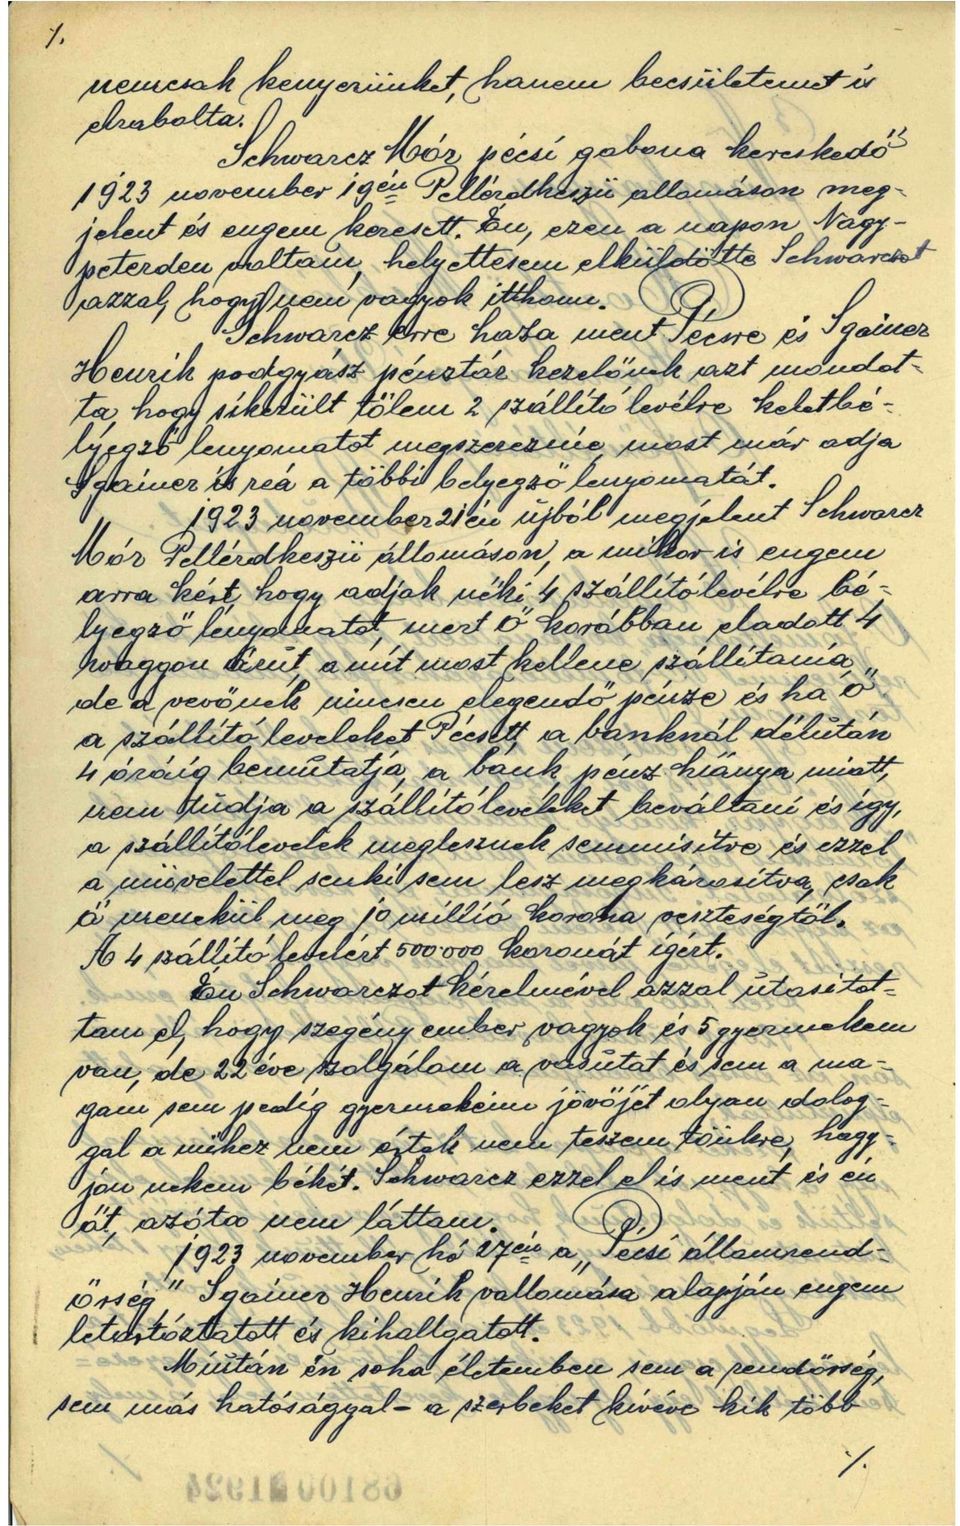 ./.
nemcsak kenyerünket, hanem becsületemet is
elrabolta.
Schwarcz Mór pécsi gabona kereskedő
1923 november 19én Pellérdkeszü allomáson meg-
jelent és engem keresett. Én, ezen a napon Nagy-
peterden voltam, helyettesem elküldötte Schwarczot
azzal, hogy nem vagyok itthonn.
Schwarcz erre haza ment Pécsre és Sgainer
Henrik podgyász pénztár kezelőnek azt mondot-
ta hogy sikerült tőlem 2 szállító levélre keletbé-
lyegző lenyomatot megszereznie, most már adja
Sgainer is reá a többi belyegző lenyomatát.
1923 november 21én újból megjelent Schwarcz
Mór Pellérdkeszü állomáson, a mikor is engem
arra kért, hogy adjak néki 4 szállítólevélre bé-
lyegző lenyomatot, mert ő korábban eladott 4
waggon árút, a mit most kellene szállítania
de a vevőnek nincsen elegendő pénze és ha ő
a szállító leveleket Pécsett a banknál délután
4 óráig bemútatja, a bank pénz hiánya miatt,
nem túdja a szállítóleveleket beváltani és így,
a szállítólevelek meglesznek semmisítve és ezzel
a müvelettel senki sem lesz megkárosítva, csak
ő menekül meg 10 millió korona veszteségtől.
A 4 szállító levélért 500.000 koronát ígért.
Én Schwarczot kérelmével azzal útasitot-
tam el, hogy szegény ember vagyok és 5 gyermekem
van, de 22 éve szolgálom a vasútat és sem a ma-
gam sem pedig gyermekeim jövőjét olyan dolog-
gal a mihez nem értek nem teszem tönkre, hagy-
jon nekem békét. Schwarcz ezzel el is ment és én
őt, azóta nem láttam.
1923 november hó 27én a „Pécsi államrend-
őrség" Sgainer Henrik vallomása alapján engem
letartóztatott és kihallgatott.
Miután én soha életemben sem a rendőrség,
sem más hatósággal - a szerbeket kivéve kik több
./.
68100 1924